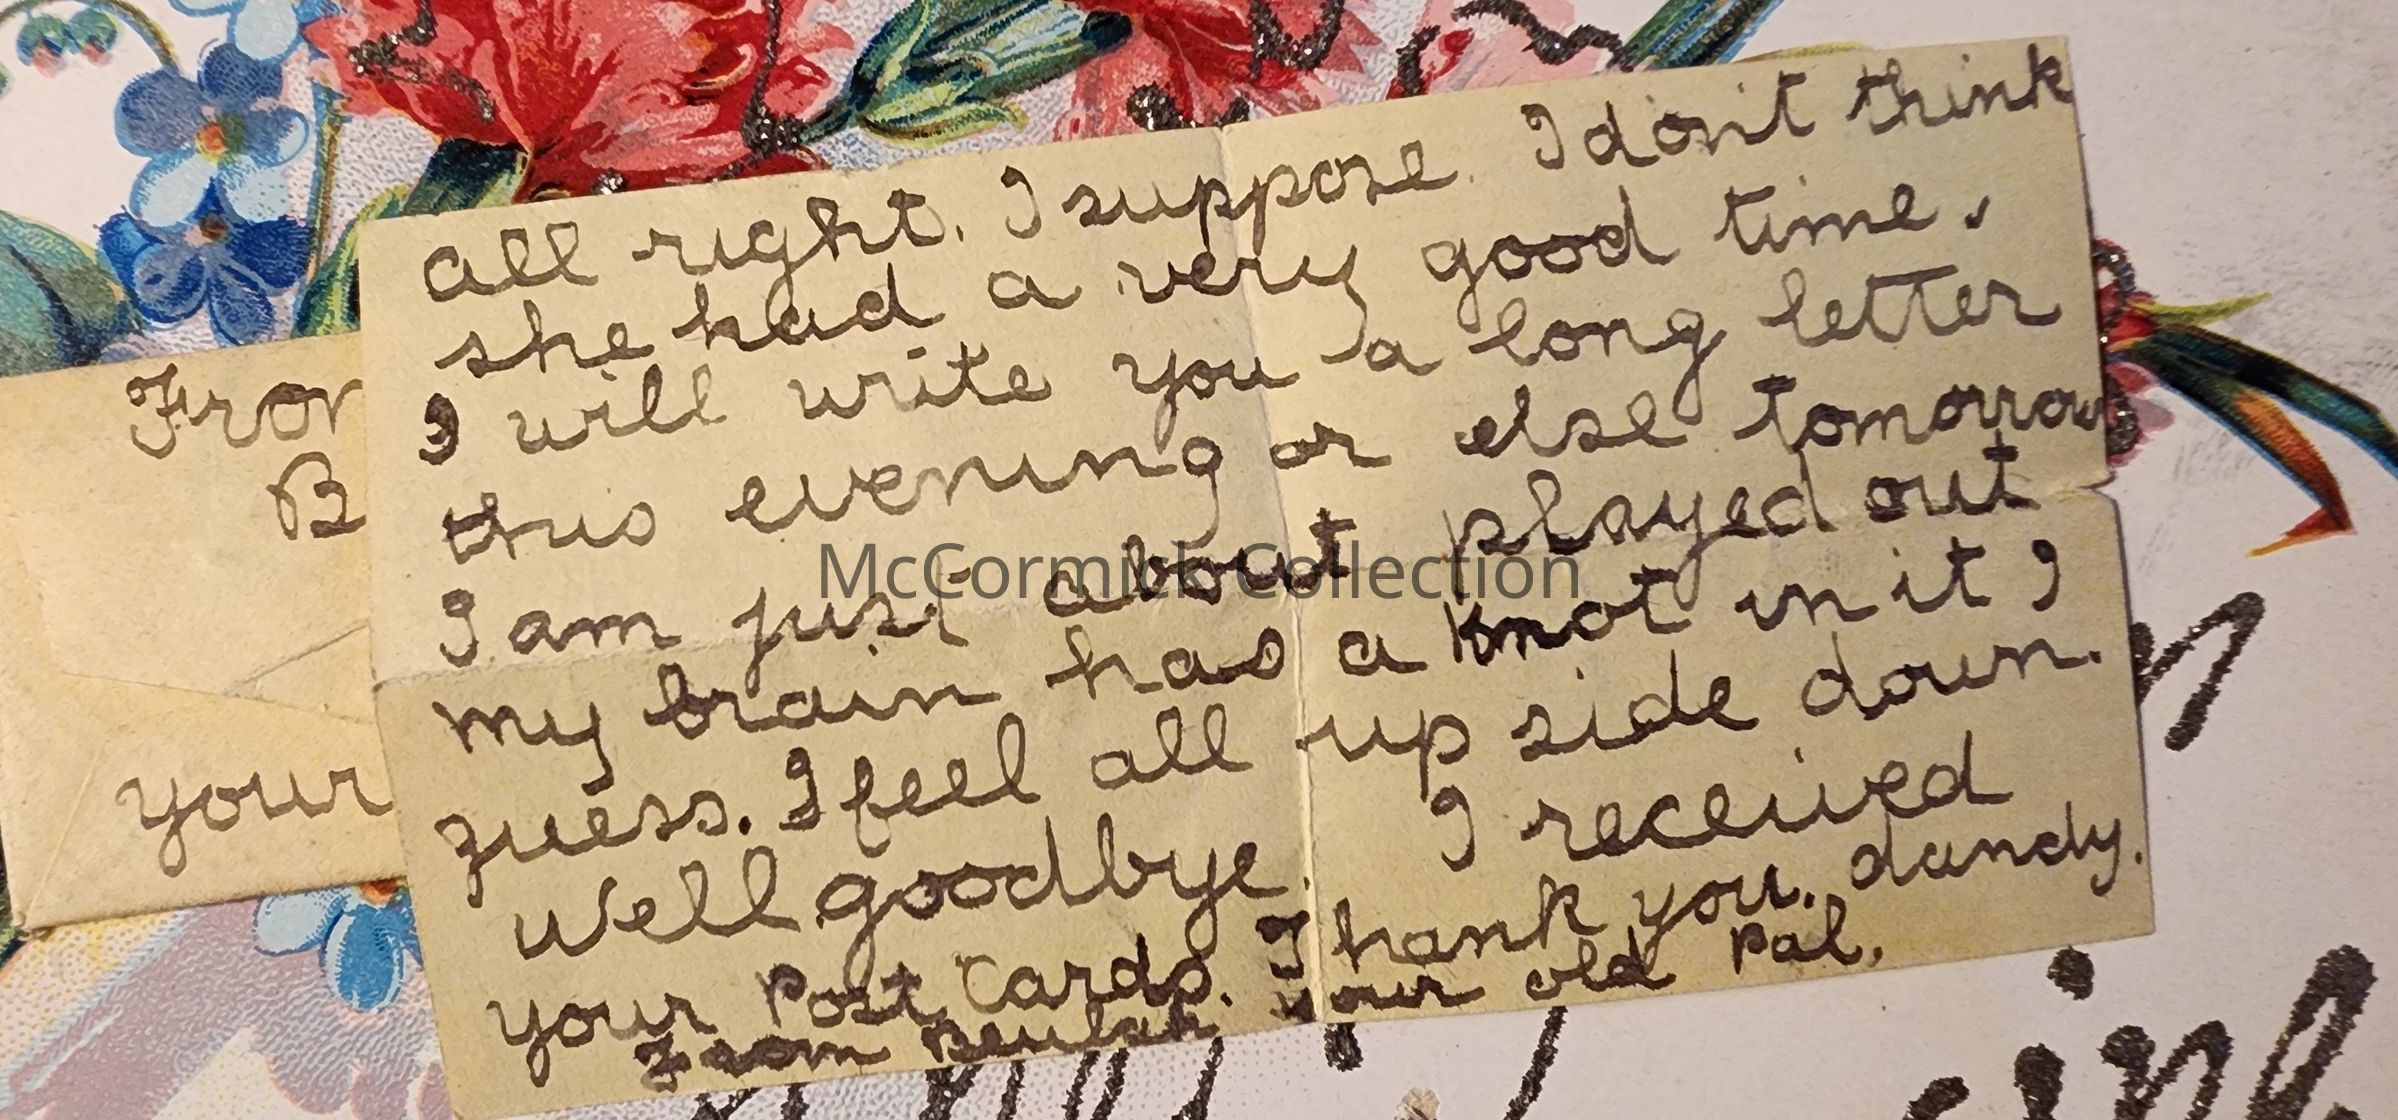 all right. I suppose. I don't think
she had a very good time.
I will write you a long letter
this evening or else tomorrow
I am just about played out
my brain has a knot in it I
guess. I feel all up side down.
Well goodbye. I received
your Post Cards. Thank you. dandy.
From Beulah your old Pal.
From
B
your
McCormick Collection